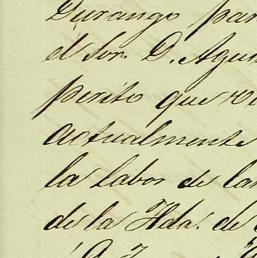 Durango par
el Sor. D. Agus
perito que re
actualmente
la labor de la
de la Hda. de